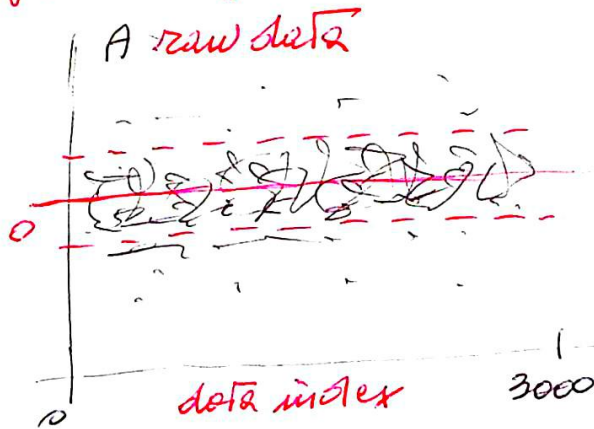 A raw data
0
0
data index
3000